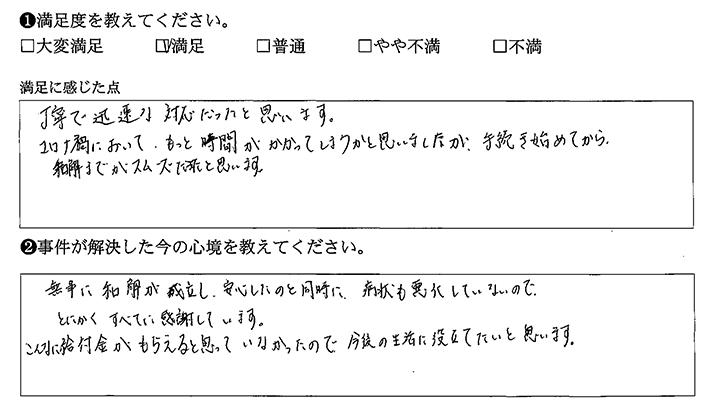 ❶満足度を教えてください。
□大変満足 ☑満足 □普通 □やや不満 □不満
満足に感じた点
丁寧で迅速な対応だったと思います。
コロナ禍において、もっと時間がかかってしまうかと思いましたが、手続き始めてから、
和解までがスムーズだったと思います。
❷事件が解決した今の心境を教えてください。
無事に和解が成立し、安心したのと同時に、病状も悪化していないので、
とにかくすべてに感謝しています。
こんなに給付金がもらえると思っていなかったので今後の生活に役立てたいと思います。